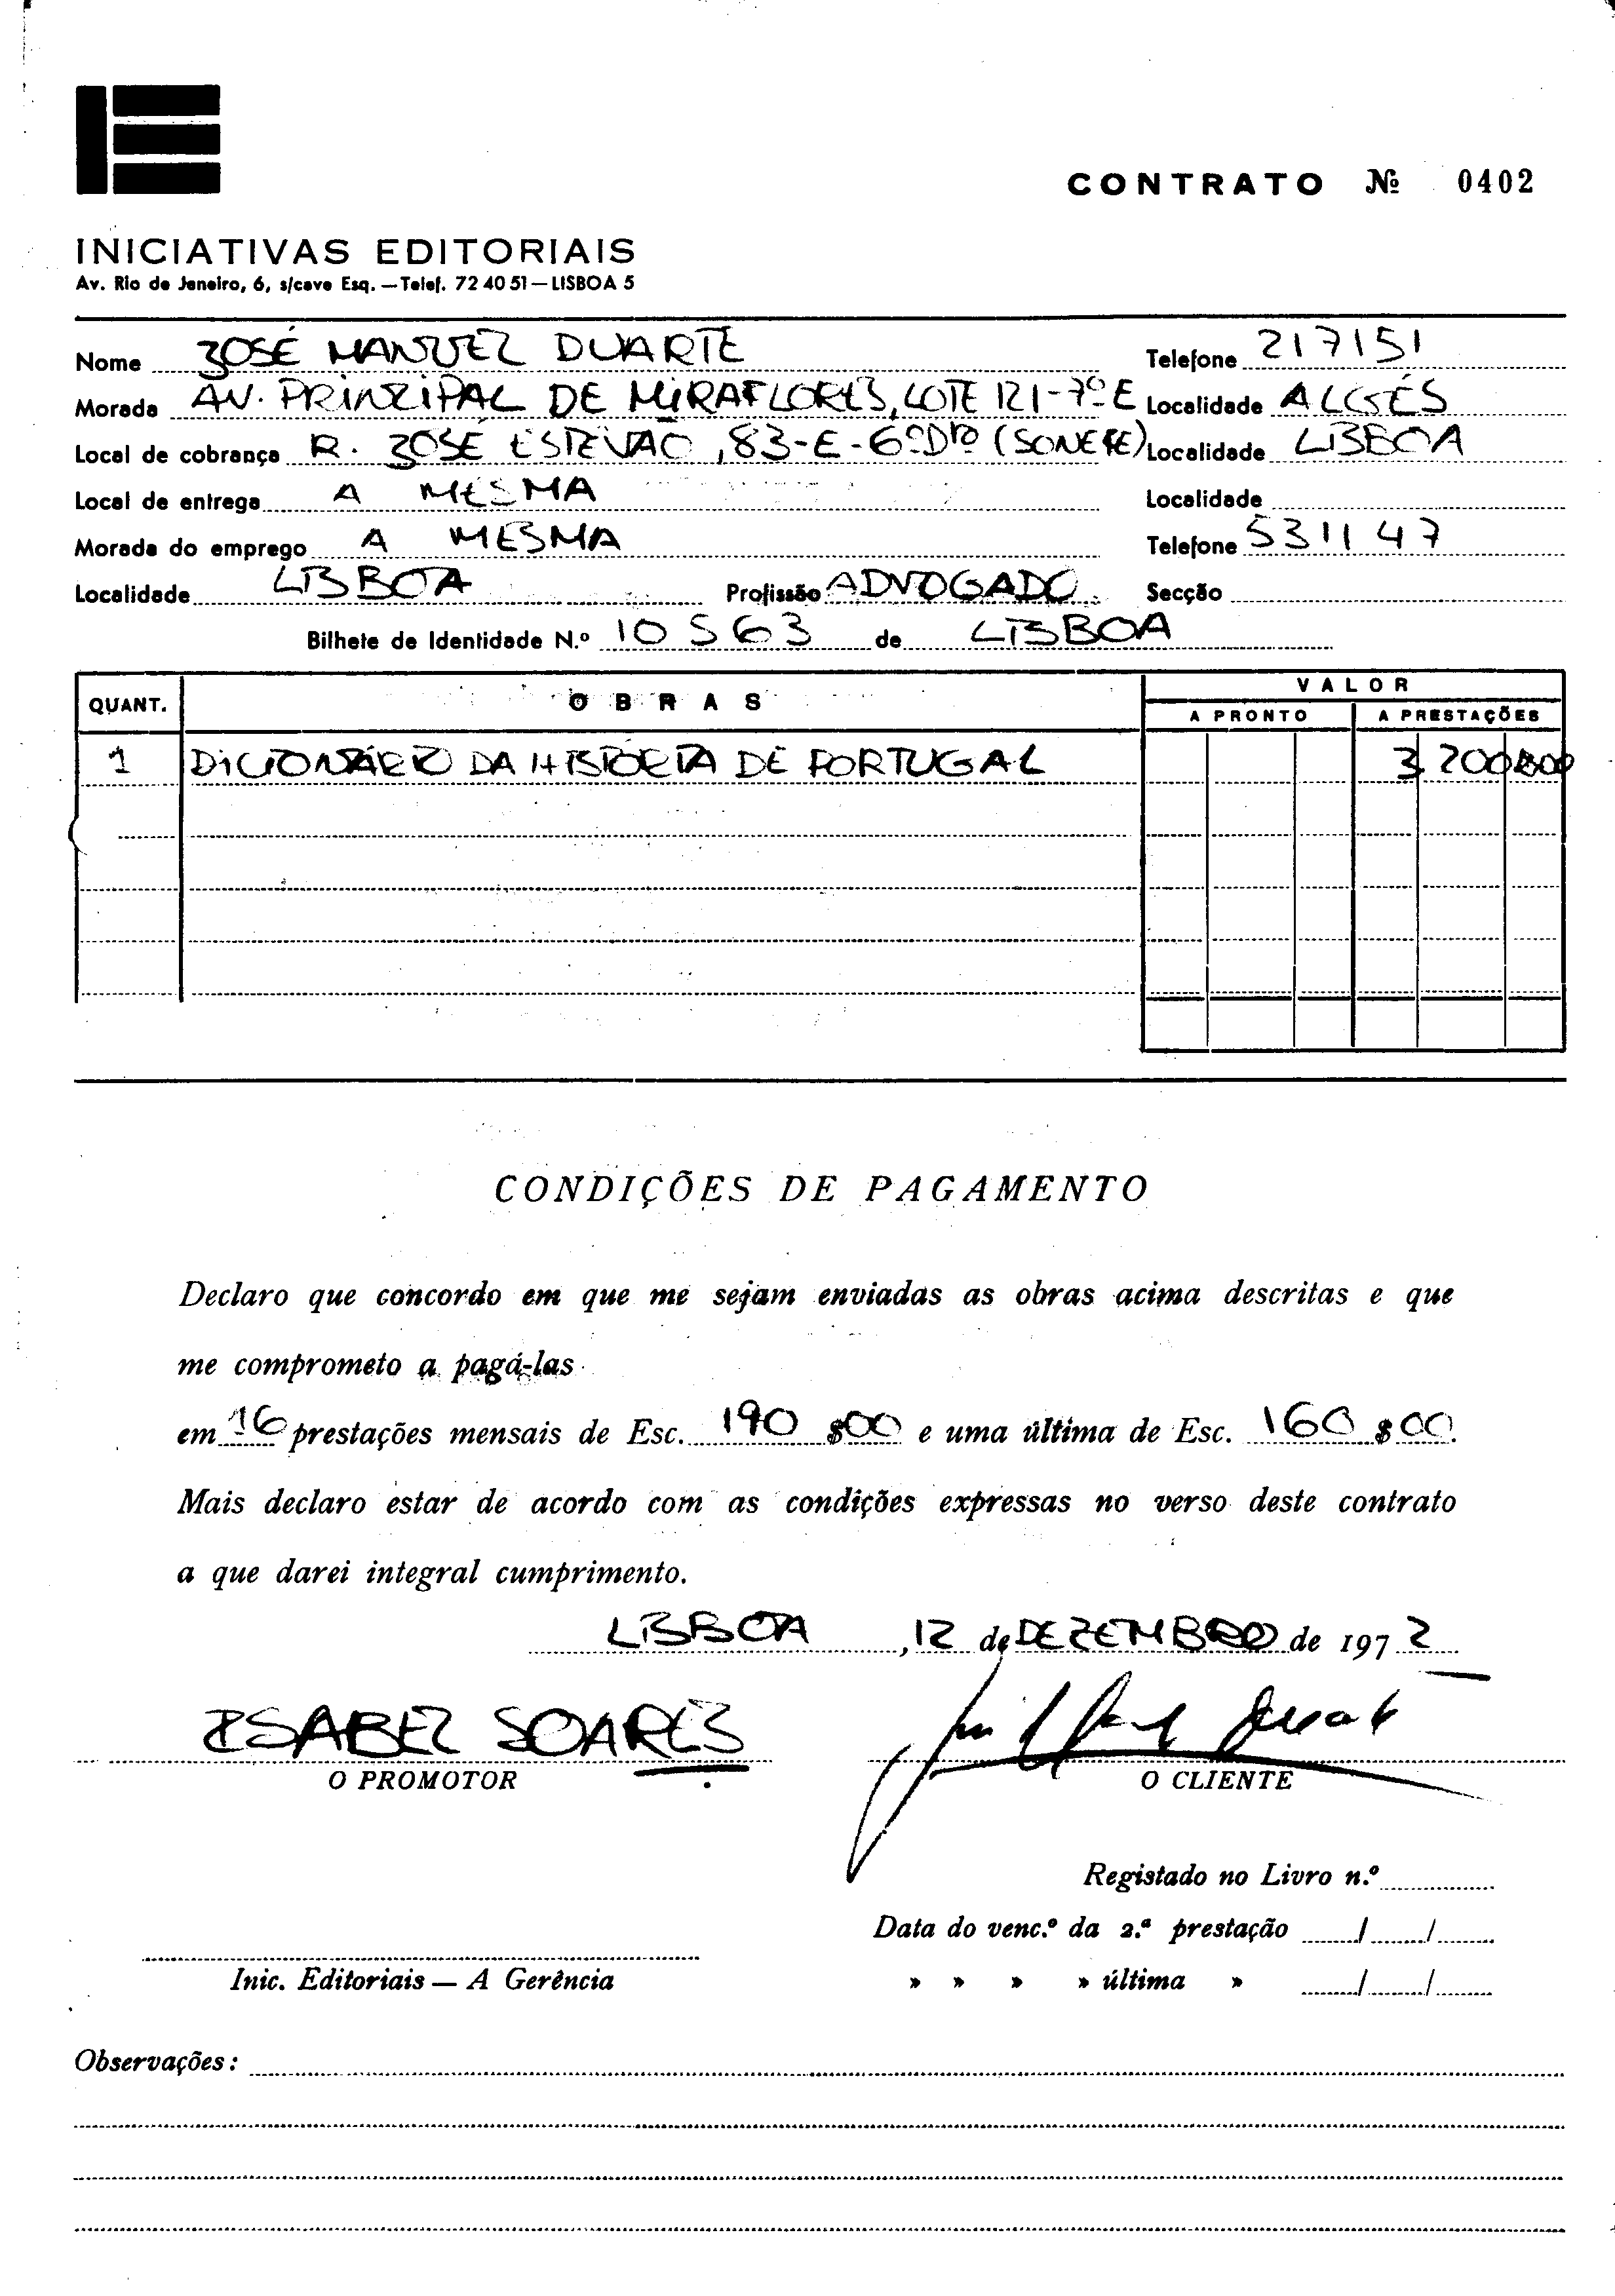 CONTRATO № 0402
INICIATIVAS EDITORIAIS
Av. Rio de Janeiro, 6, s/cave Esq. — Telef. 72 40 51 — LISBOA 5
Nome JOSÉ MANUEL DUARTE Telefone 217151
Morada AV. PRINCIPAL DE MIRAFLORES, LOTE 121-7º E Localidade ALGÉS
Local de cobrança R. JOSÉ ESTEVÃO, 83-E-6º Dtº (SONEFE) Localidade LISBOA
Local de entrega A MESMA Localidade
Morada do emprego A MESMA Telefone 531147
Localidade LISBOA Profissão ADVOGADO Secção
Bilhete de Identidade N.º 10563 de LISBOA
QUANT. OBRAS VALOR
A PRONTO A PRESTAÇÕES
1 DICIONÁRIO DA HISTÓRIA DE PORTUGAL 3 200$00
CONDIÇÕES DE PAGAMENTO
Declaro que concordo em que me sejam enviadas as obras acima descritas e que
me comprometo a pagá-las
em 16 prestações mensais de Esc. 190 $00 e uma última de Esc. 160 $00.
Mais declaro estar de acordo com as condições expressas no verso deste contrato
a que darei integral cumprimento.
LISBOA, 12 de DEZEMBRO de 1972
ISABEL SOARES
O PROMOTOR O CLIENTE
Registado no Livro n.º
Data do venc.º da 2.ª prestação / /
Inic. Editoriais — A Gerência » » » » última » / /
Observações: